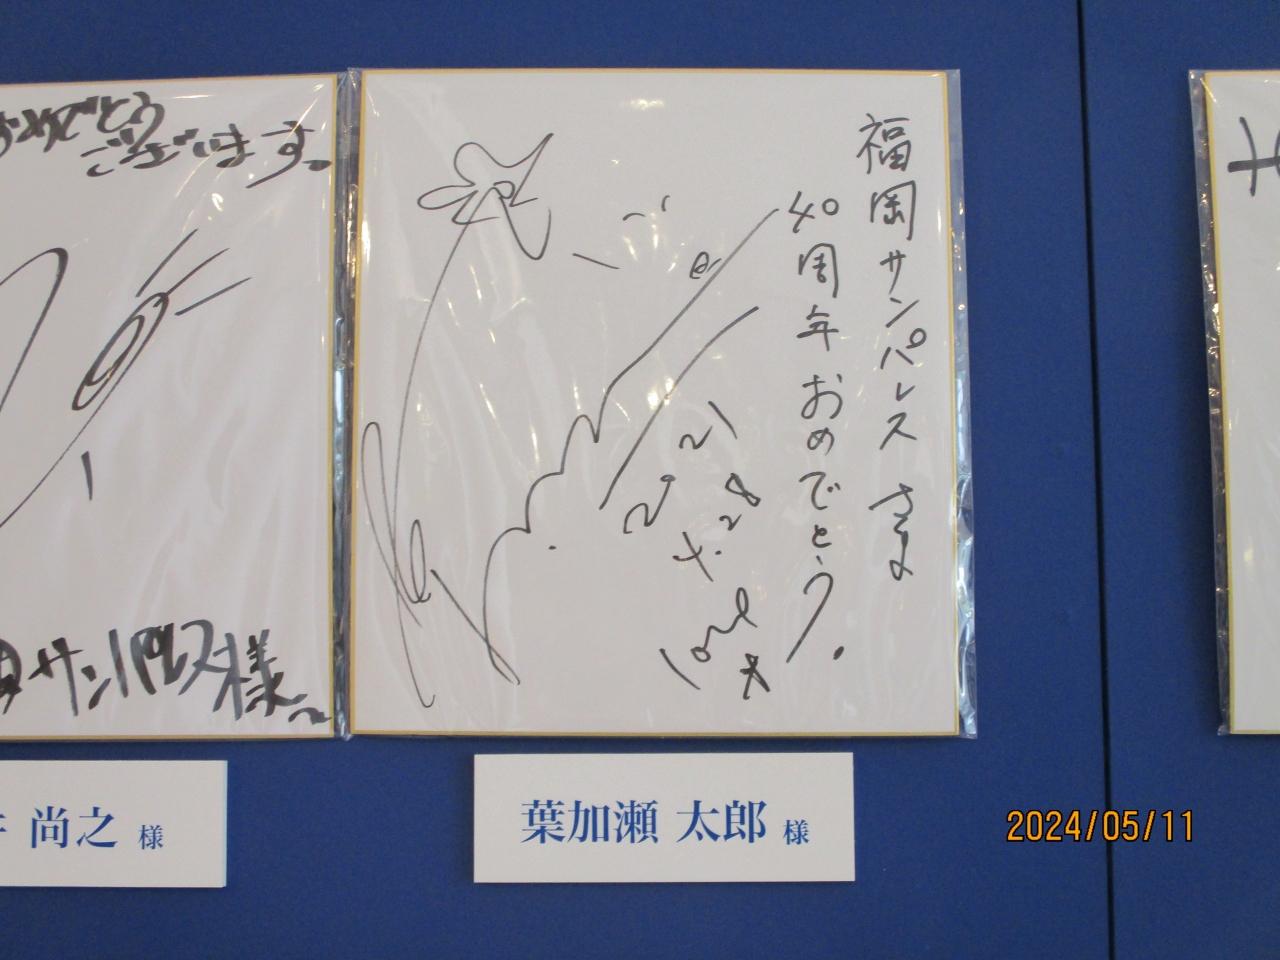 おめでとう
ございます。
サンパレス様
尚之 様
福岡サンパレスさま
40周年おめでとう。
2021
4.28
葉加瀬 太郎 様
2024/05/11